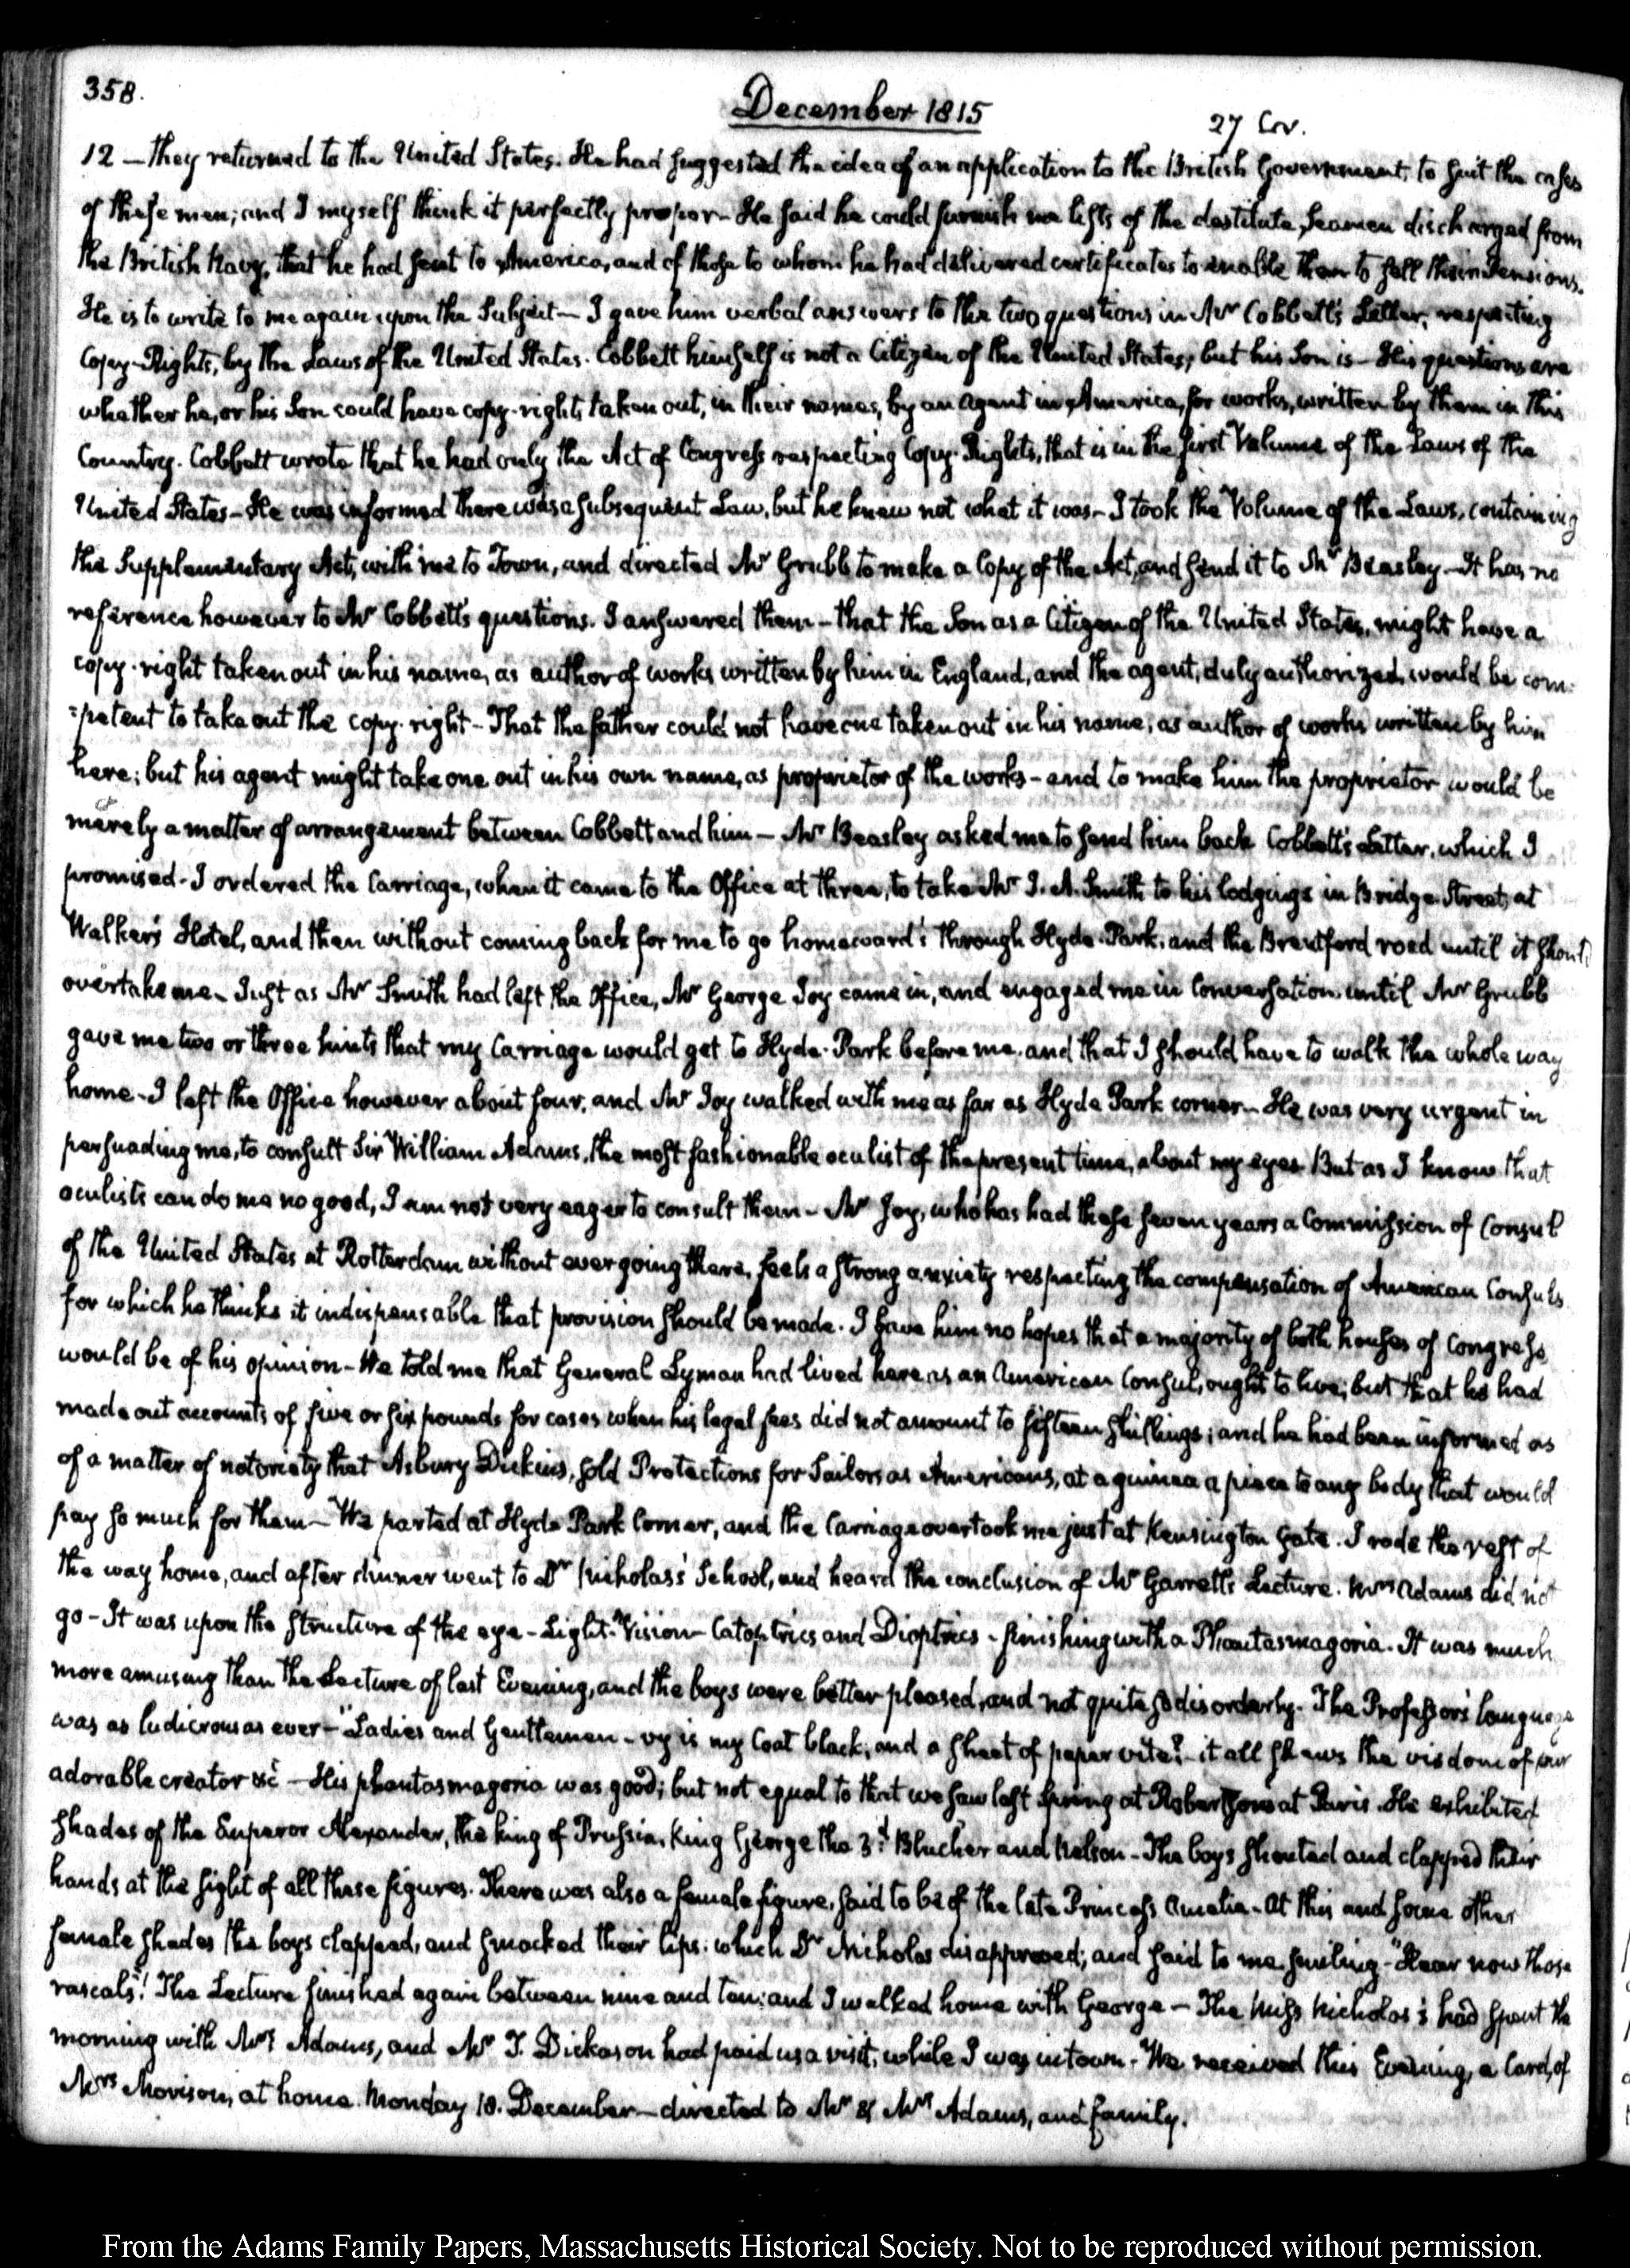 358.
December 1815
27 Cov.
12 — they returned to the United States. He had suggested the idea of an application to the British Government, to suit the cases
of these men; and I myself think it perfectly proper — He said he could furnish me lists of the destitute, Seamen discharged from
the British Navy, that he had sent to America, and of those to whom he had delivered certificates to enable them to sell their Pensions.
He is to write to me again upon the Subject — I gave him verbal answers to the two questions in Mr Cobbett's Letter, respecting
Copy-Rights, by the Laws of the United States. Cobbett himself is not a Citizen of the United States, but his Son is — His questions are
whether he, or his Son could have copy-rights taken out, in their names, by an agent in America, for works, written by them in this
Country. Cobbett wrote that he had only the Act of Congress respecting Copy-Rights, that is in the first Volume of the Laws of the
United States — He was informed there was a subsequent Law, but he knew not what it was — I took the Volume of the Laws, containing
the Supplementary Act, with me to Town, and directed Mr Grubb to make a Copy of the Act, and send it to Mr Beasley — It has no
reference however to Mr Cobbett's questions. I answered them — that the Son as a Citizen of the United States, might have a
copy-right taken out in his name, as author of works written by him in England, and the agent, duly authorized, would be com-
=petent to take out the copy-right — That the father could not have one taken out in his name, as author of works written by him
here; but his agent might take one out in his own name, as proprietor of the works — and to make him the proprietor would be
merely a matter of arrangement between Cobbett and him — Mr Beasley asked me to send him back Cobbett's Letter, which I
promised. I ordered the Carriage, when it came to the Office at three, to take Mr J. A. Smith to his lodgings in Bridge Street, at
Walker's Hotel, and then without coming back for me to go homeward's through Hyde-Park, and the Brentford road until it should
overtake me — Just as Mr Smith had left the Office, Mr George Joy came in, and engaged me in Conversation until Mr Grubb
gave me two or three hints that my Carriage would get to Hyde-Park before me, and that I should have to walk the whole way
home — I left the Office however about four, and Mr Joy walked with me as far as Hyde Park corner — He was very urgent in
persuading me, to consult Sir William Adams, the most fashionable oculist of the present time, about my eyes. But as I know that
oculists can do me no good, I am not very eager to consult them — Mr Joy, who has had these seven years a Commission of Consul
of the United States at Rotterdam without ever going there, feels a strong anxiety respecting the compensation of American Consuls
for which he thinks it indispensable that provision should be made. I gave him no hopes that a majority of both houses of Congress
would be of his opinion — He told me that General Lyman had lived here as an American Consul, ought to live; but that he had
made out accounts of five or six pounds for cases when his legal fees did not amount to fifteen shillings; and he had been informed as
of a matter of notoriety that Asbury Dickins, sold Protections for Sailors as Americans, at a guinea a piece to any body that would
pay so much for them — We parted at Hyde Park Corner, and the Carriage overtook me just at Kensington Gate. I rode the rest of
the way home, and after dinner went to Dr Nicholas's School, and heard the conclusion of Mr Garrett's Lecture. Mrs Adams did not
go — It was upon the structure of the eye — Light — Vision — Catoptrics and Dioptrics — finishing with a Phantasmagoria. It was much
more amusing than the Lecture of last Evening, and the boys were better pleased, and not quite so disorderly. The Professor's language
was as ludicrous as ever — "Ladies and Gentlemen — vy is my Coat black, and a sheet of paper vite? — it all shews the visdom of our
adorable creator &c — His phantasmagoria was good; but not equal to that we saw last Spring at Robertson's at Paris. He exhibited
shades of the Emperor Alexander, the king of Prussia, King George the 3d Blucher and Nelson — The boys shouted and clapped their
hands at the sight of all these figures. There was also a female figure, said to be of the late Princess Amelia — At this and some other
female shades the boys clapped, and smacked their lips: which Dr Nicholas disapproved; and said to me smiling — "Hear now those
rascals"! The Lecture finished again between nine and ten; and I walked home with George — The Miss Nicholas's had spent the
morning with Mrs Adams, and Mr T. Dickason had paid us a visit, while I was in town — We received this Evening, a Card, of
Mrs Morison, at home. Monday 18. December — directed to Mr & Mrs Adams, and family.
From the Adams Family Papers, Massachusetts Historical Society. Not to be reproduced without permission.